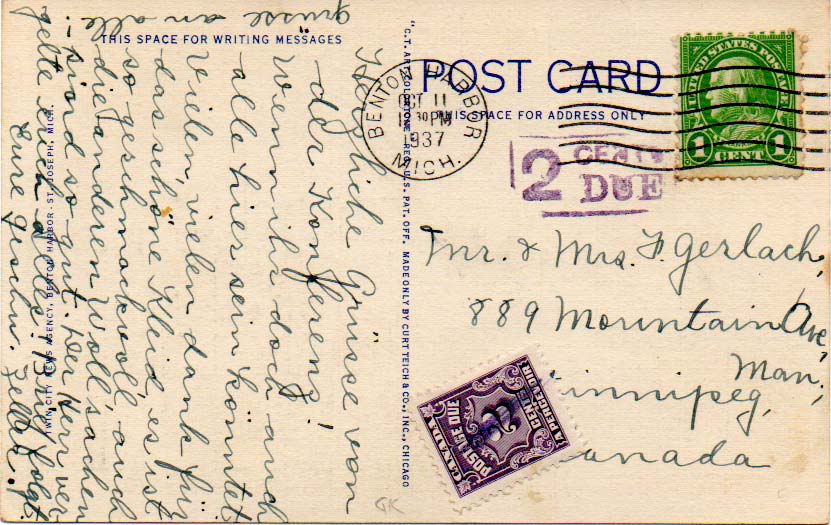 THIS SPACE FOR WRITING MESSAGES
Herzliche Grüsse von
der Konferenz!
Wenn ihr doch auch
alle hier sein könntet
Vielen, vielen dank für
das schöne Kleid, es ist
so geschmackvoll, auch
die anderen Woll'sachen
sind so gut. Der Herr ver-
gelte Euch alles! Brief folgt.
Eure geschw.
grüsse an alle
TWIN CITY NEWS AGENCY, BENTON HARBOR - ST. JOSEPH, MICH.
"C.T. ART-COLORTONE" REG. U.S. PAT. OFF. MADE ONLY BY CURT TEICH & CO., INC., CHICAGO
POST CARD
THIS SPACE FOR ADDRESS ONLY
BENTON HARBOR
OCT 11
30 PM
1937
MICH.
UNITED STATES POSTAGE
1 CENT 1
2 CENTS
DUE
Mr. & Mrs. F. Gerlach,
889 Mountain Ave,
Winnipeg, Man,
Canada
CANADA
POSTAGE DUE
2
CENTS
À PERCEVOIR
GK